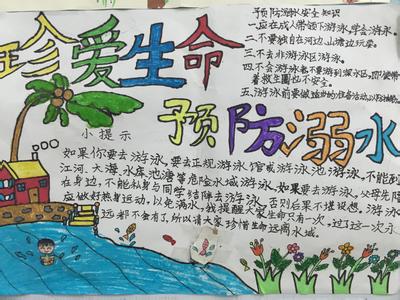 珍爱生命
预防溺水
预防溺水安全知识
一.应在成人带领下游泳,学会游泳。
二.不要独自在河边、山塘边玩耍。
三.不去非游泳区游泳。
四.不会游泳者,不要游到深水区,即使带
着救生圈也不安全。
五.游泳前要做适当的准备活动,以防抽筋。
小提示
如果你要去游泳,要去正规游泳馆或游泳池游泳,不能到
江河、大海、水库、池塘等危险水域游泳,如果要去游泳,父母先陪
在身边,不能私自与同学结伴去游泳,否则后果不堪设想。游泳
应做好热身运动,以免溺水,我提醒大家生命只有一次,过了这一次,永
远都不会有了,所以请大家珍惜生命远离水域。